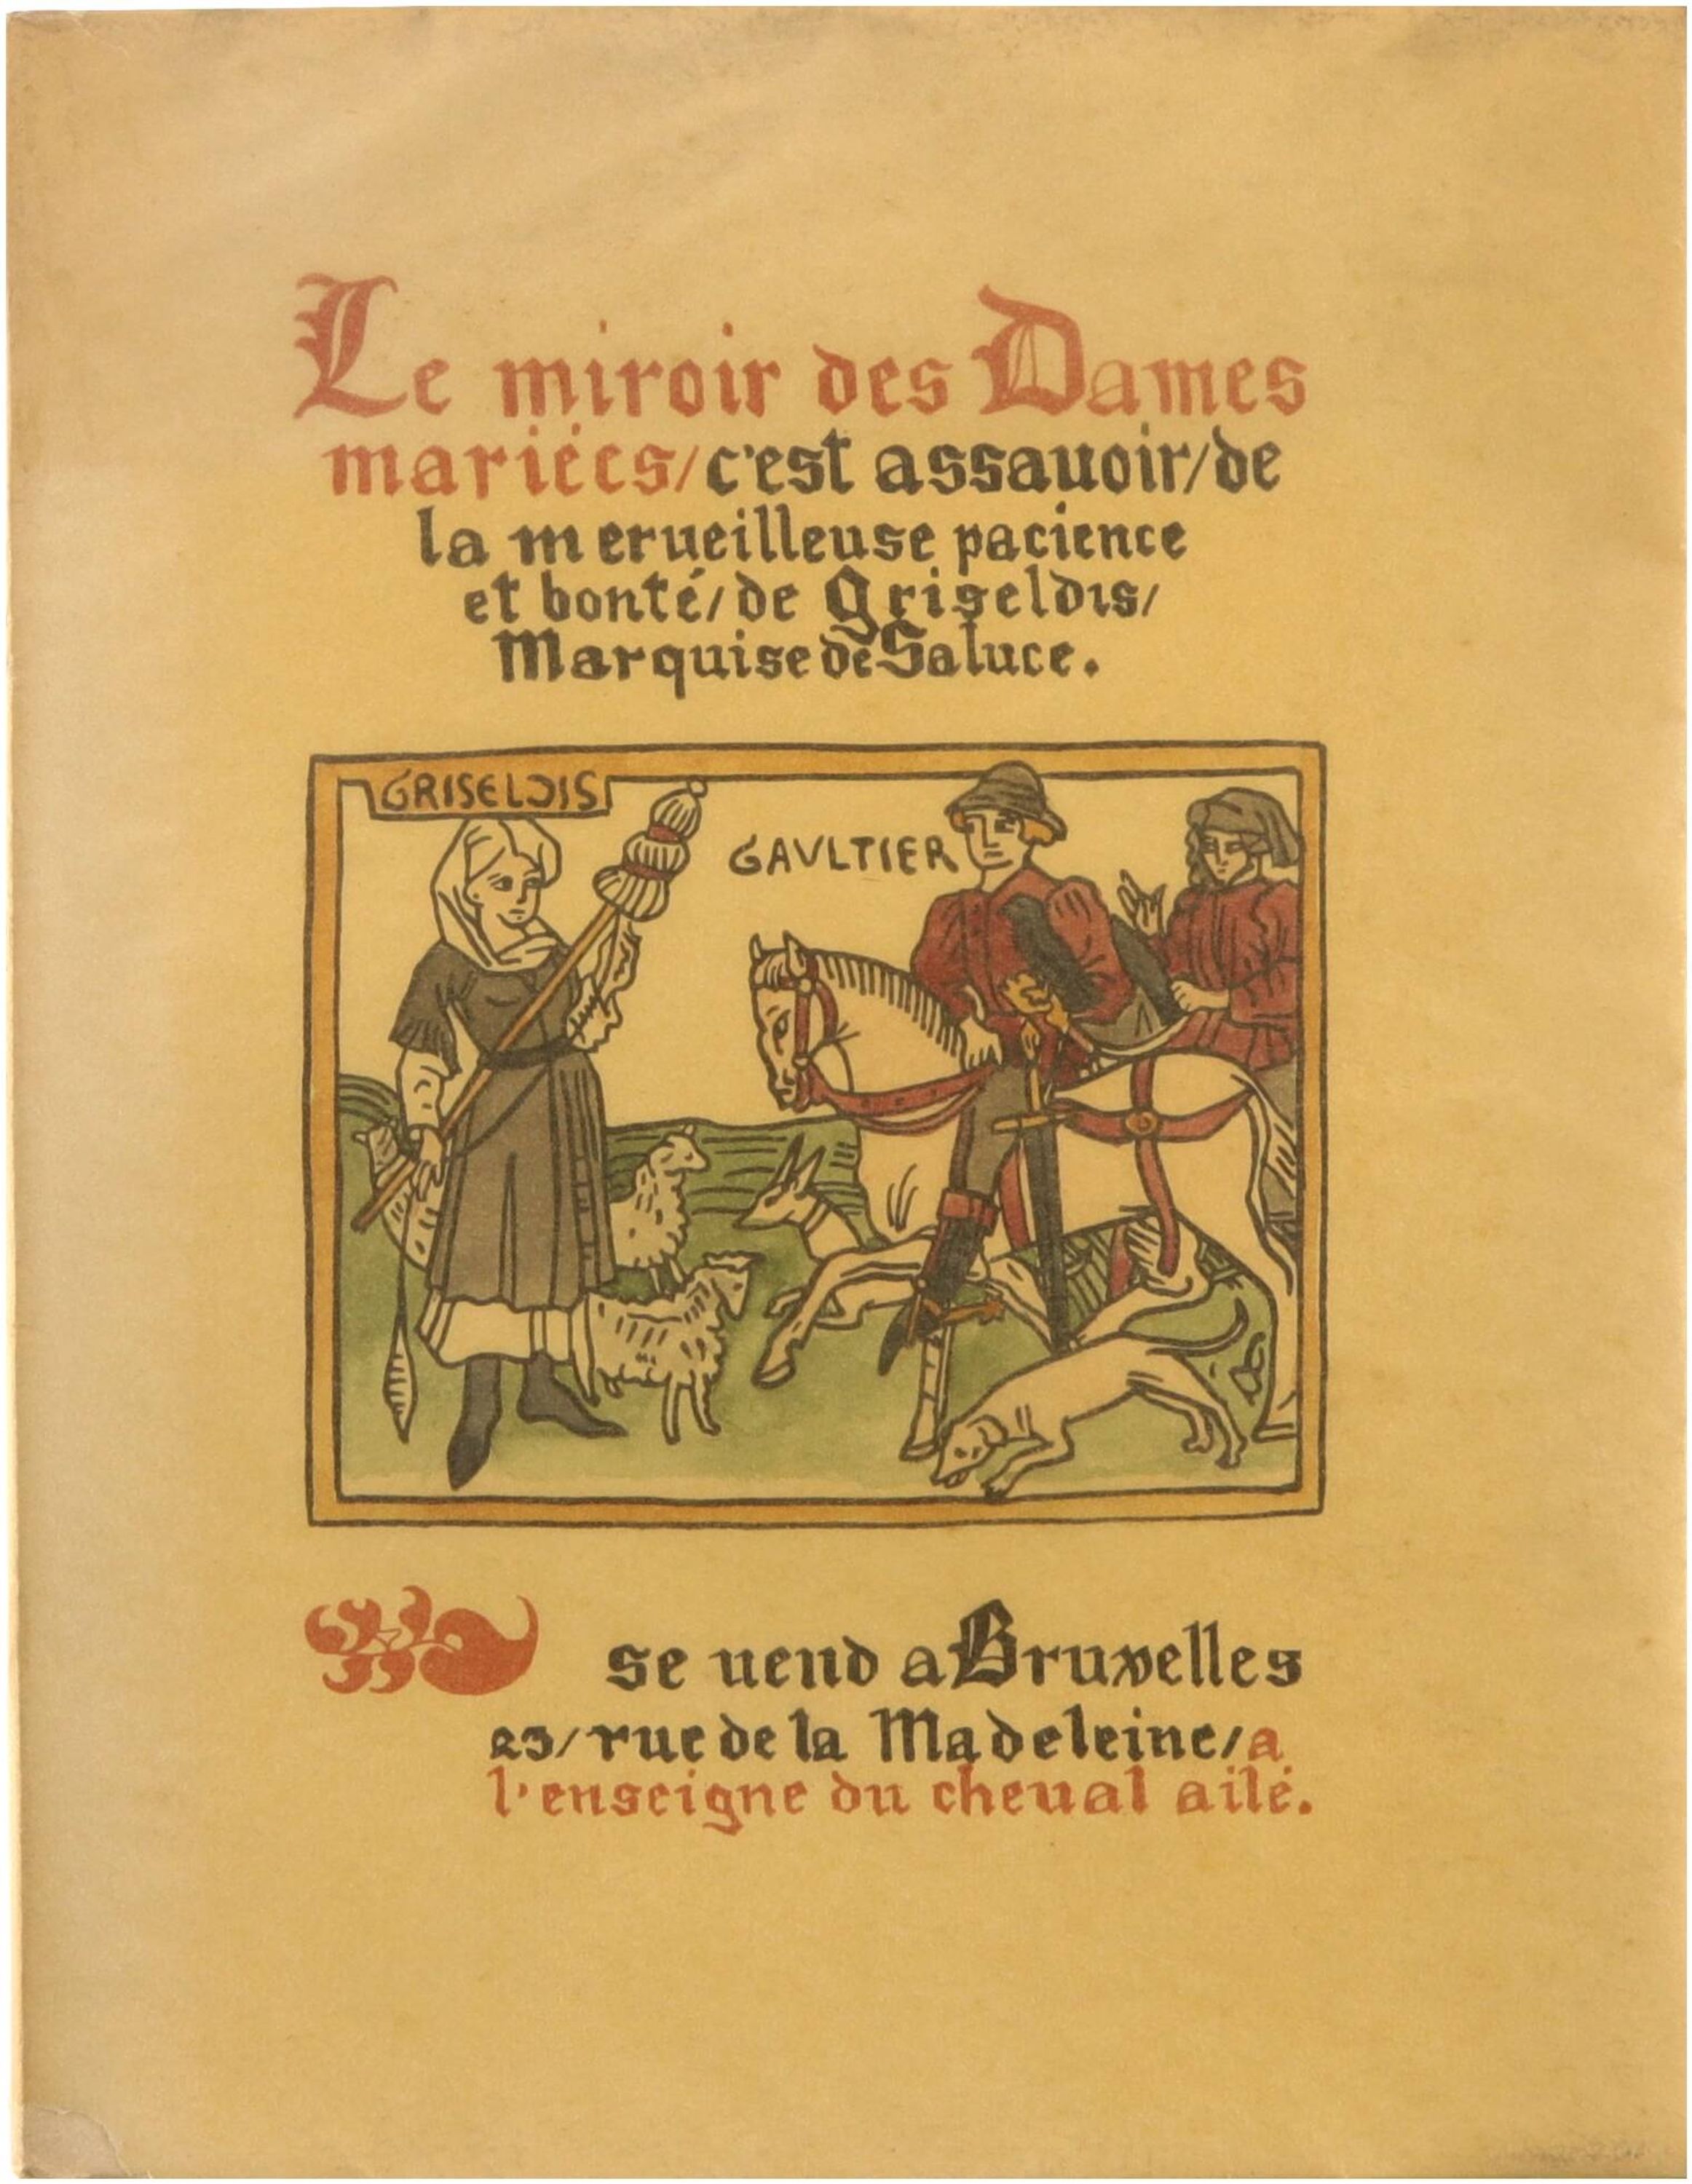 Le miroir des Dames
mariées/c'est assauoir/de
la merueilleuse pacience
et bonté/de Griseldis/
Marquise de Saluce.
GRISELDIS
GAVLTIER
se uend a Bruxelles
23/rue de la Madeleine/a
l'enseigne du cheual ailé.